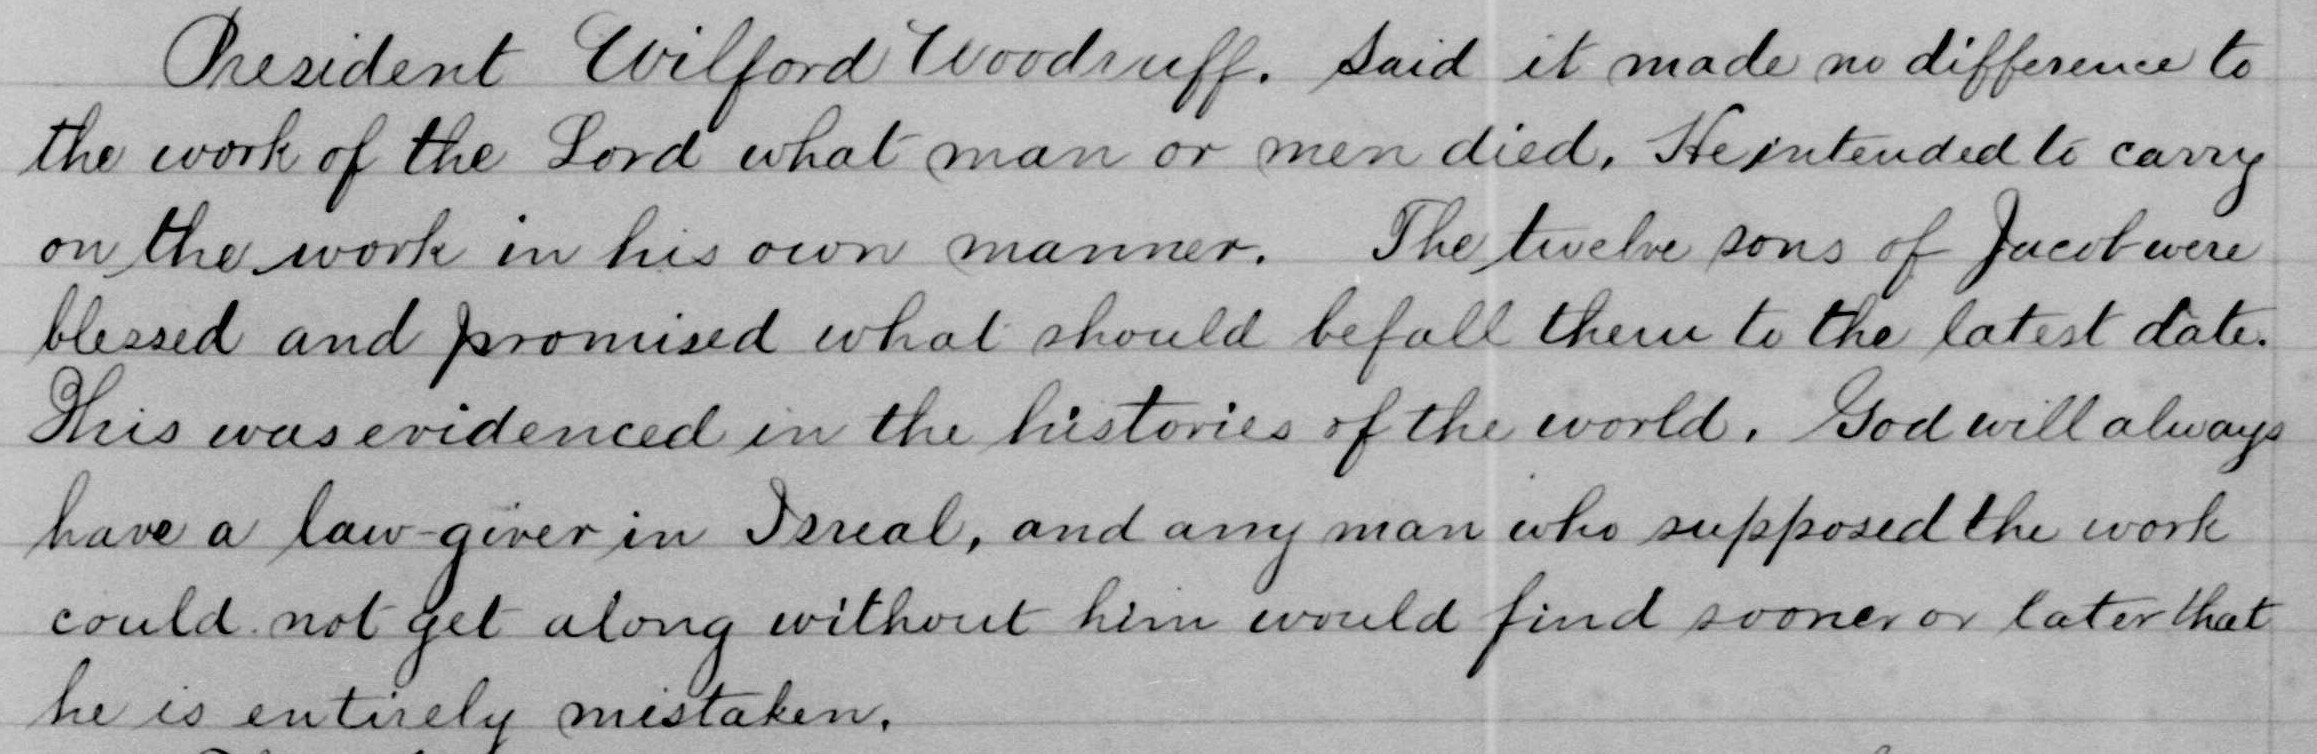 President Wilford Woodruff. Said it made no difference to
the work of the Lord what man or men died. He intended to carry
on the work in his own manner. The twelve sons of Jacob were
blessed and promised what should befall them to the latest date.
This was evidenced in the histories of the world. God will always
have a law-giver in Isreal, and any man who supposed the work
could not get along without him would find sooner or later that
he is entirely mistaken.